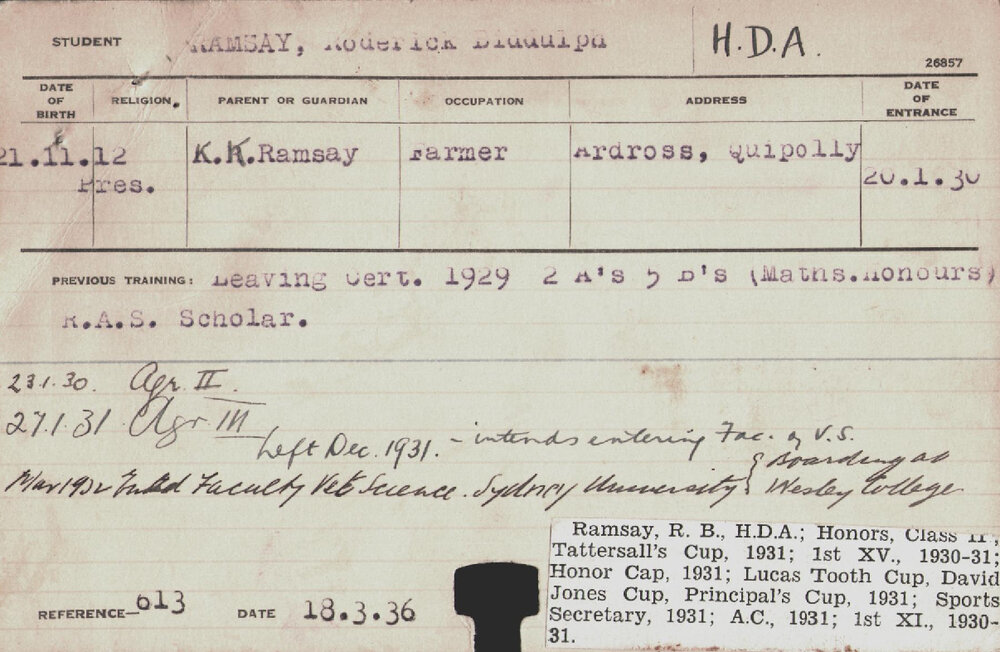 STUDENT RAMSAY, Roderick Biddulph H.D.A.
26857
DATE OF BIRTH RELIGION. PARENT OR GUARDIAN OCCUPATION ADDRESS DATE OF ENTRANCE
21.11.12 K.K.Ramsay Farmer Ardross, Quipolly
Pres. 20.1.30
PREVIOUS TRAINING: Leaving Cert. 1929 2 A's 5 B's (Maths.Honours)
R.A.S. Scholar.
23.1.30. Agr II.
27.1.31 Agr III
Left Dec. 1931. - intends entering Fac. of V.S.
Mar 1932 Entd Faculty Vet Science. Sydney University { Boarding at
Wesley College
Ramsay, R. B., H.D.A.; Honors, Class II;
Tattersall's Cup, 1931; 1st XV., 1930-31;
Honor Cap, 1931; Lucas Tooth Cup, David
Jones Cup, Principal's Cup, 1931; Sports
Secretary, 1931; A.C., 1931; 1st XI., 1930-
31.
REFERENCE 613 DATE 18.3.36